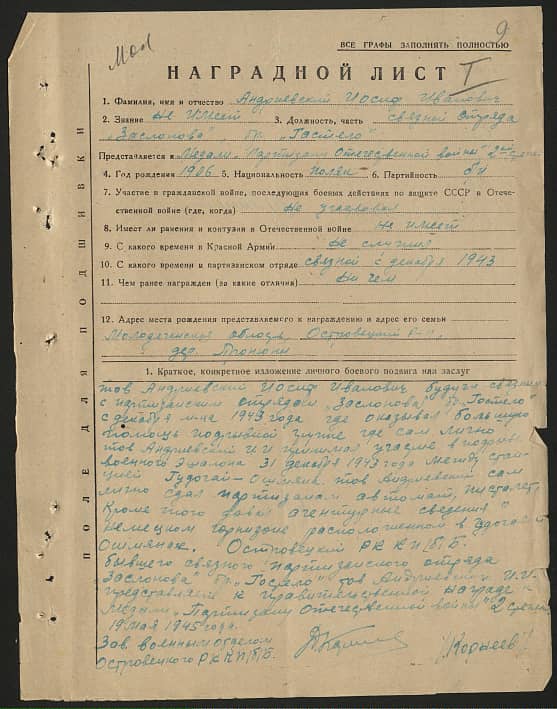 9
Мол
ВСЕ ГРАФЫ ЗАПОЛНЯТЬ ПОЛНОСТЬЮ
НАГРАДНОЙ ЛИСТ I
1. Фамилия, имя и отчество Андриевский Иосиф Иванович
2. Звание не имеет 3. Должность, часть связной отряда
„Заслонова" бр. „Гастело"
Представляется к Медали „Партизану Отечественной войны" 2ой степ.
4. Год рождения 1906 5. Национальность поляк 6. Партийность б/п
7. Участие в гражданской войне, последующих боевых действиях по защите СССР в Отече-
ственной войне (где, когда) Не учавствовал
8. Имеет ли ранения и контузии в Отечественной войне Не имеет
9. С какого времени в Красной Армии Не служил
10. С какого времени в партизанском отряде связной с декабря 1943
11. Чем ранее награжден (за какие отличия) Ни чем
12. Адрес места рождения представляемого к награждению и адрес его семьи
Молодеченская область, Островецкий р-н,
дер.
1. Краткое, конкретное изложение личного боевого подвига или заслуг
тов Андриевский Иосиф Иванович будучи связным
с партизанским отрядом „Заслонова" бр. „Гастело"
с декабря м-ца 1943 года где оказывал большую
помощь подрывной группе где сам лично
тов Андриевский И.И принимал участие в подрыве
военного эшалона 31 декабря 1943 года между стан-
цией Гудогай – Ошмяна. тов Андриевский сам
лично сдал партизанам автомат, пистолет,
Кроме того давал агентурные сведения о
немецком гарнизоне расположенном в
Ошмянах. Островецкий РК КП/б/Б.
бывшего связного партизанского отряда
„Заслонова" бр. „Гастело" тов Андриевского И.И.
представляет к правительственной награде к
медали „Партизану Отечественной войны" 2 степени
19 мая 1945 года.
Зав. военным отделом
Островецкого РК КП/б/Б. /Корнеев/
ПОЛЕ ДЛЯ ПОДШИВКИ